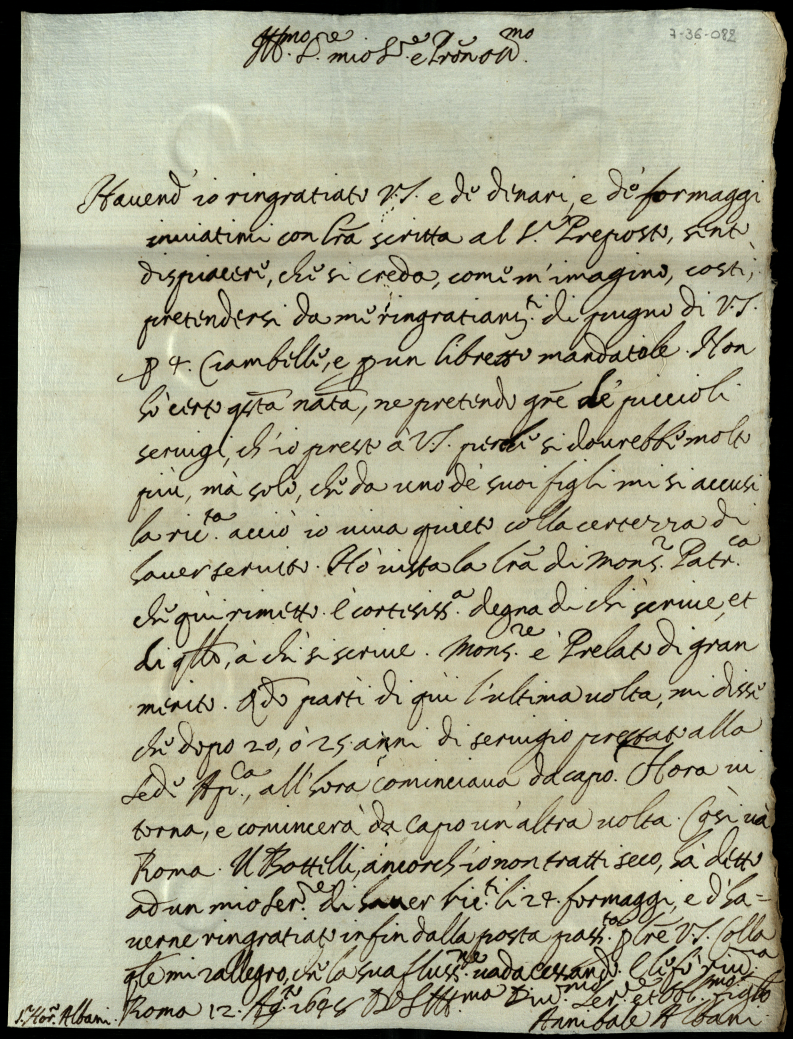 7-36-082
Ill.mo S.re mio S.re e Pron Oss.mo
Havend' io ringratiato V.S. e de denari, e de formaggi
inviatimi con lrã scritta al S.r Preposto, sento
dispiacere, che si creda, come m'imagino, costi,
pretendersi da me ringratiam.ti di pugno di V.S.
p 4. Ciambelle, e p un libretto mandatole. Non
hò certo qsta nata, ne pretendo grẽ de' piccioli
servigi, ch'io presto à V.S. perche si dovrebbe molto
più, mà solo, che da uno de suoi figli mi si accusi
la ric.ta acciò io viva quieto colla certezza di
haver servito. Hò vista la lrã di Mons.r Patr.ca
che qui rimetto. è cortesiss.a degna di chi scrive, et
di qllo, à chi si scrive. Mons.re è Prelato di gran
merito. Qdo parti di qui l'ultima volta, mi disse
che dopo 20, ò 25 anni di servigio prestato alla
Sede Ap.ca, all'hora cominciava da capo. Hora vi
torna, e comincerà da capo un'altra volta. Così và
Roma. Il Battilli, ancorch'io non tratti seco, hà detto
ad un mio Ser.re di haver ric.ti li 24. formaggi, e d'ha-
verne ringratiato infin dalla posta pass.ta plre V.S. Colla
qle mi rallegro, che la sua fluss.ne vada cessando. E le fò riv.za
Roma 12. Ag.to 1645 Di V.S. Ill.ma Div.mo Ser.re et Obl.mo figlo
S.r Hor.o Albani. Annibale Albani